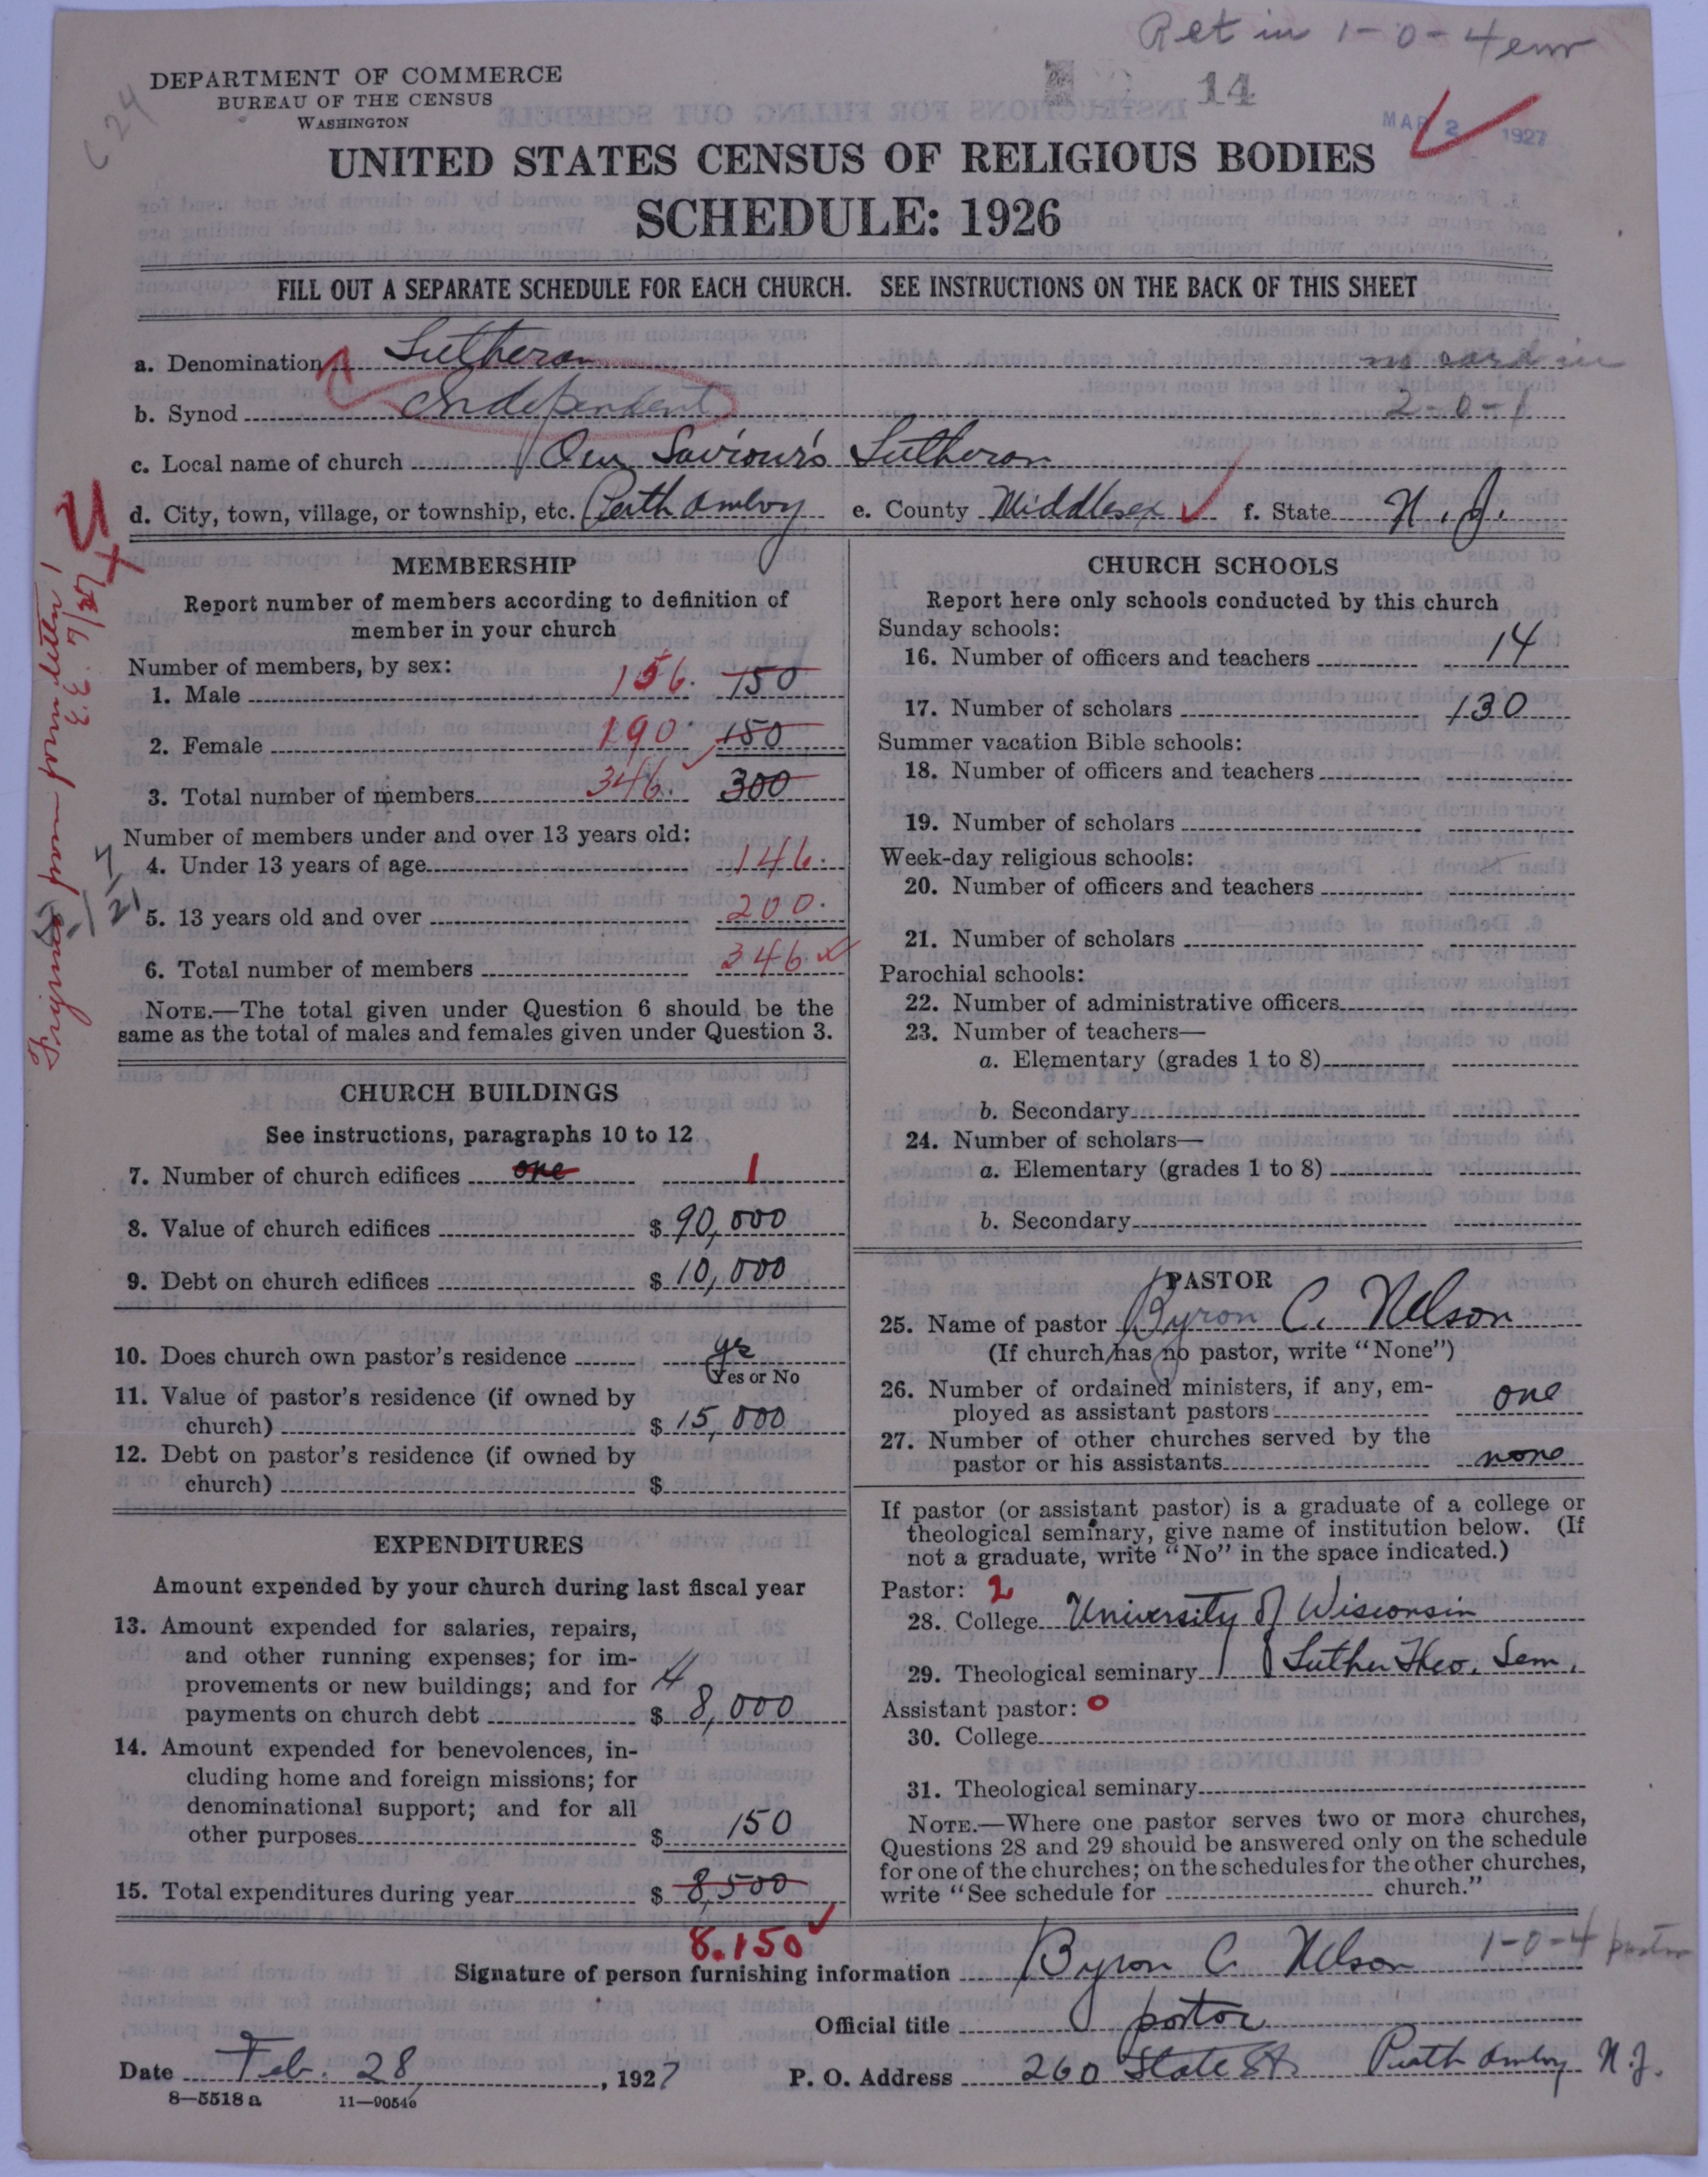 Ret in 1-0-4 enr
DEPARTMENT OF COMMERCE
BUREAU OF THE CENSUS
WASHINGTON
C 24
14
MAR 2 1927
UNITED STATES CENSUS OF RELIGIOUS BODIES
SCHEDULE: 1926
FILL OUT A SEPARATE SCHEDULE FOR EACH CHURCH. SEE INSTRUCTIONS ON THE BACK OF THIS SHEET
a. Denomination Lutheran no card in
b. Synod Independent 2-0-1
c. Local name of church Our Saviour's Lutheran
d. City, town, village, or township, etc. Perth Amboy e. County Middlesex f. State N. J.
Figures from form letter!
E. E. 7/27
MEMBERSHIP
Report number of members according to definition of
member in your church
Number of members, by sex:
1. Male 156. 150
2. Female 190. 150
3. Total number of members 346. 300
Number of members under and over 13 years old:
4. Under 13 years of age 146.
5. 13 years old and over 200.
6. Total number of members 346
NOTE.—The total given under Question 6 should be the
same as the total of males and females given under Question 3.
CHURCH BUILDINGS
See instructions, paragraphs 10 to 12
7. Number of church edifices one 1
8. Value of church edifices $ 90,000
9. Debt on church edifices $ 10,000
10. Does church own pastor's residence yes
Yes or No
11. Value of pastor's residence (if owned by
church) $ 15,000
12. Debt on pastor's residence (if owned by
church) $
EXPENDITURES
Amount expended by your church during last fiscal year
13. Amount expended for salaries, repairs,
and other running expenses; for im-
provements or new buildings; and for
payments on church debt $ 8,000
14. Amount expended for benevolences, in-
cluding home and foreign missions; for
denominational support; and for all
other purposes $ 150
15. Total expenditures during year $ 8,500
8.150
CHURCH SCHOOLS
Report here only schools conducted by this church
Sunday schools:
16. Number of officers and teachers 14
17. Number of scholars 130
Summer vacation Bible schools:
18. Number of officers and teachers
19. Number of scholars
Week-day religious schools:
20. Number of officers and teachers
21. Number of scholars
Parochial schools:
22. Number of administrative officers
23. Number of teachers—
a. Elementary (grades 1 to 8)
b. Secondary
24. Number of scholars—
a. Elementary (grades 1 to 8)
b. Secondary
PASTOR
25. Name of pastor Byron C. Nelson
(If church has no pastor, write "None")
26. Number of ordained ministers, if any, em-
ployed as assistant pastors one
27. Number of other churches served by the
pastor or his assistants none
If pastor (or assistant pastor) is a graduate of a college or
theological seminary, give name of institution below. (If
not a graduate, write "No" in the space indicated.)
Pastor: 2
28. College University of Wisconsin
29. Theological seminary Luther Theo. Sem.
Assistant pastor: 0
30. College
31. Theological seminary
NOTE.—Where one pastor serves two or more churches,
Questions 28 and 29 should be answered only on the schedule
for one of the churches; on the schedules for the other churches,
write "See schedule for church."
Signature of person furnishing information Byron C. Nelson 1-0-4 pastor
Official title pastor
Date Feb. 28, 1927 P. O. Address 260 State St. Perth Amboy N.J.
8—5518 a 11—9054